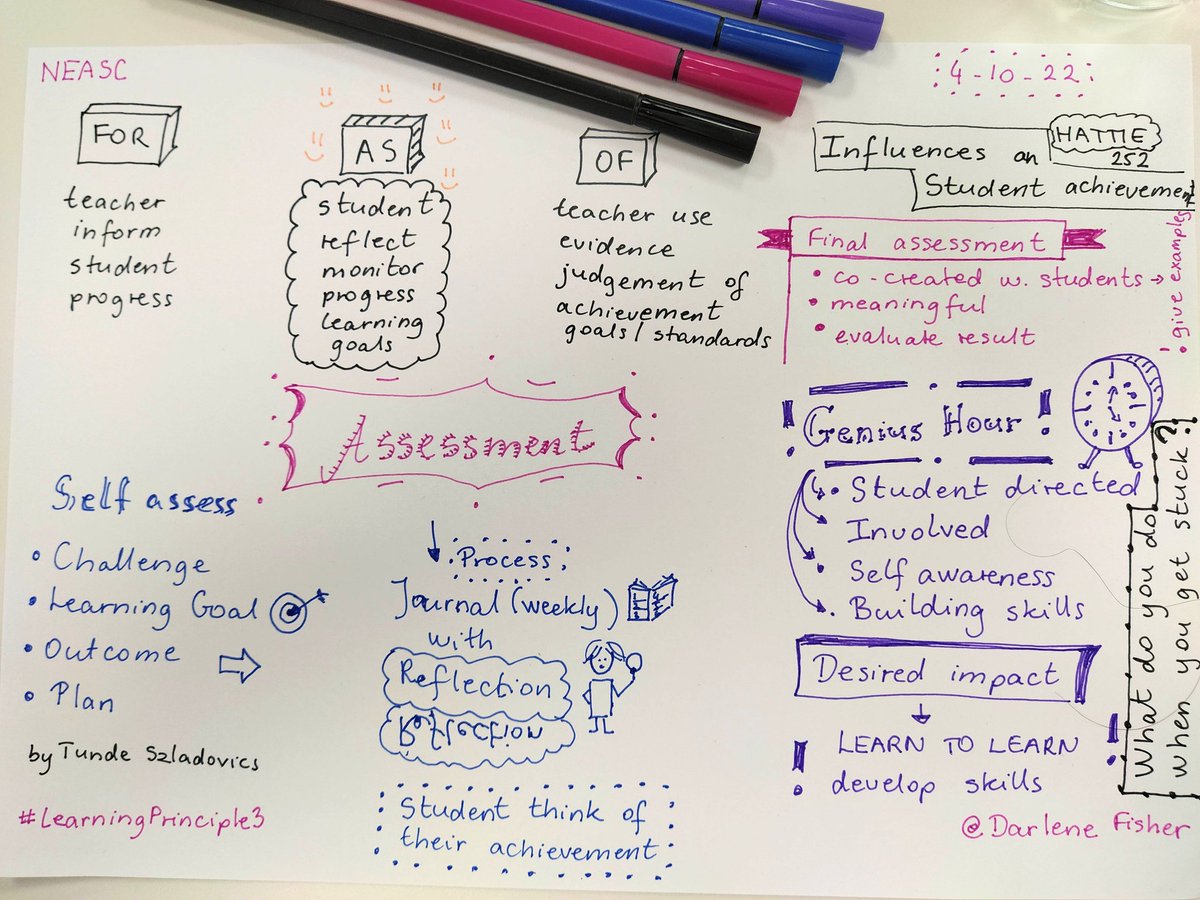 NEASC
4-10-22
FOR
teacher
inform
student
progress
AS
student
reflect
monitor
progress
learning
goals
OF
teacher use
evidence
judgement of
achievement
goals/standards
Influences on
HATTIE
252
Student achievement
Final assessment
• co-created w. students →
• meaningful
• evaluate result
! • give examples
Assessment
Self assess
• Challenge
• Learning Goal
• Outcome
• Plan
Process
Journal (weekly)
with
Reflection
Reflection
Student think of
their achievement
! Genius Hour !
• Student directed
• Involved
• Self awareness
• Building skills
What do you do
when you get stuck?!
Desired impact
! LEARN TO LEARN !
develop skills
by Tunde Szladovics
#LearningPrinciple3
@Darlene Fisher